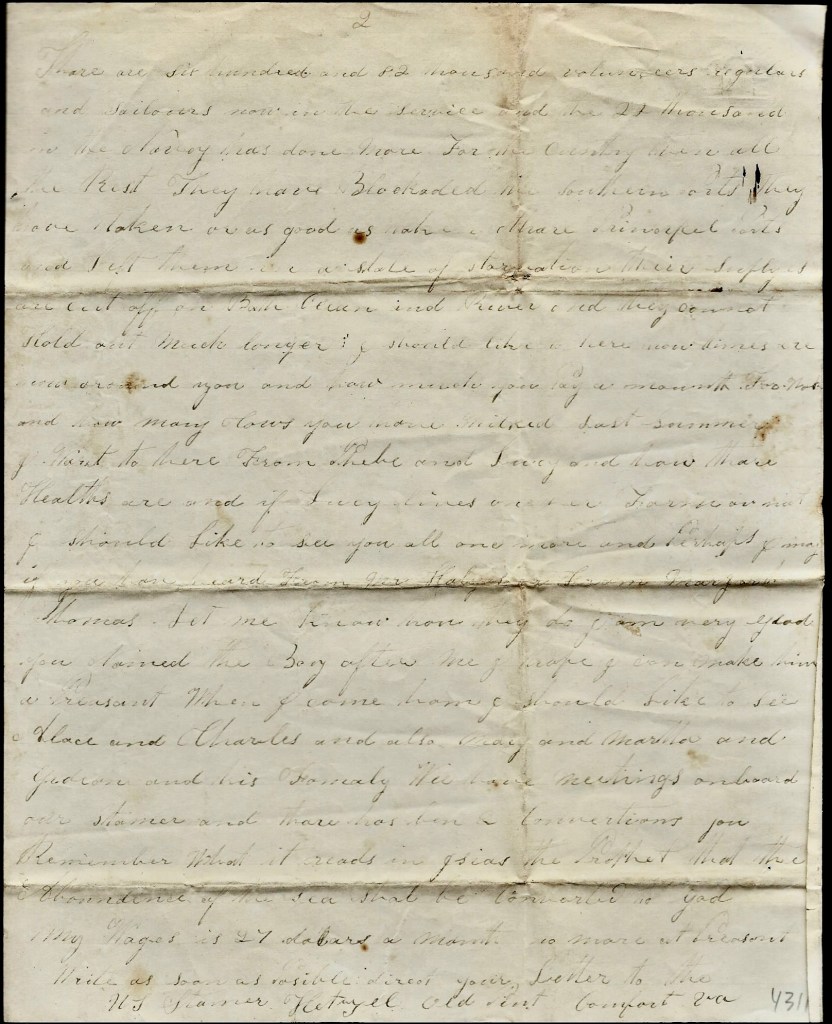 2
Thare are six hundred and 82 thousand volunteers Regulars
and Sailours now in the service and the 22 thousand
in the Navey has done more For the Cuntry then all
the Rest They have Blockaded the Southern ports They
have taken or as good as taken thare Prinsipel Ports
and Put them in a state of starvation their Suplys
are cut off on Both Ocean and River and they cannot
Hold out much longer I should like to here how times are
around you and how much you pay a month For
and how many Cows you have milked Last summer
I Want to here From Phebe and Lucy and how thare
Healths are and if Lucy lives on her Farme or not
I should Like to see you all once more and Perhaps I may
if you have heard From Mr From
Thomas Let me know how they do I am very glad
you named the Boy after me I hope I can make him
a Preasant When I come home I should Like to see
and Charles and also Mary and Martha and
Gideon and his Famely We have meetings onboard
our stamer and thare has ben Convertions you
Remember What it reads in Isias the Prophet that the
Aboundence of the sea shal be Converted to God
My Wages is 27 dolars a month no more at Preasant
Write as soon as posible direct your Letter to the
US Stamer Hetzel Old Pint Comfort Va
431